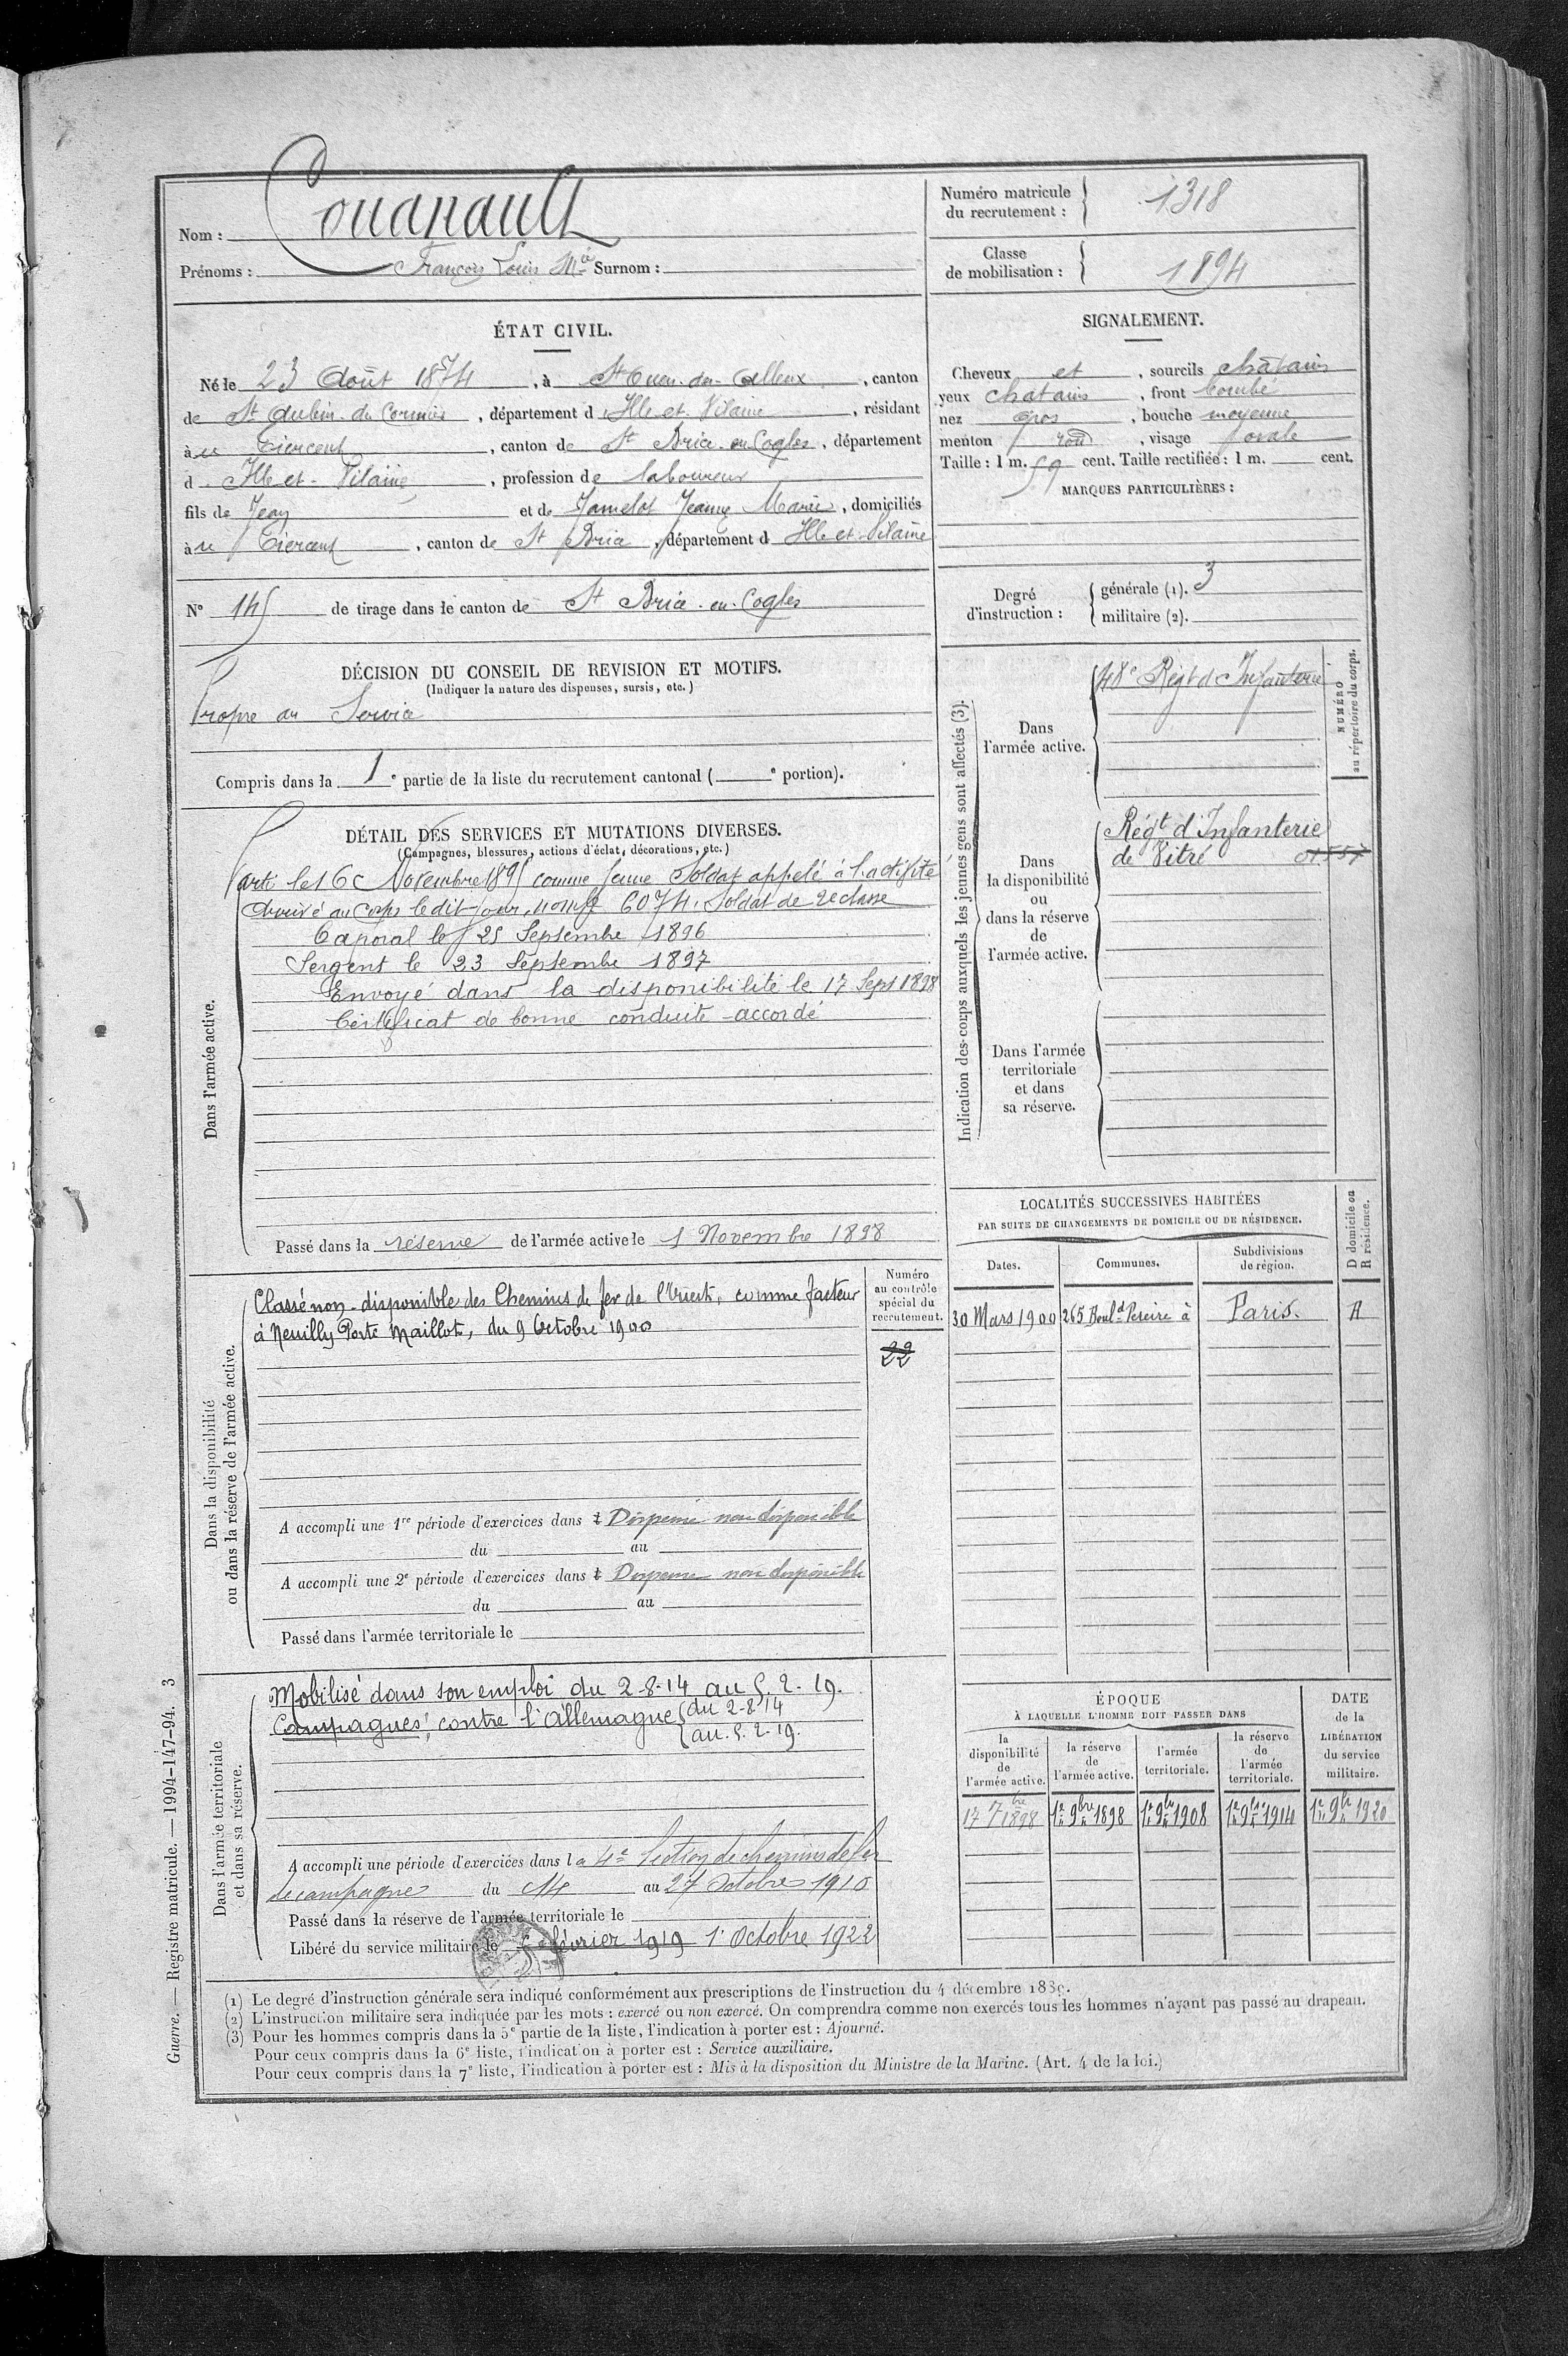 Nom : Couanault
Prénoms : François Louis Mie Surnom :
Numéro matricule
du recrutement : 1318
Classe
de mobilisation : 1894
ÉTAT CIVIL.
Né le 23 Août 1874, à St Ouen-des-Alleux, canton
de St Aubin-du-Cormier, département d Ille-et-Vilaine, résidant
à u Tiercent, canton de St Brice-en-Cogles, département
d Ille-et-Vilaine, profession de laboureur
fils de Jean et de Jamelot Jeanne Marie, domiciliés
à u Tiercent, canton de St Brice, département d Ille-et-Vilaine
N° 145 de tirage dans le canton de St Brice-en-Cogles
SIGNALEMENT.
Cheveux et, sourcils châtains
yeux chatains, front bombé
nez gros, bouche moyenne
menton rond, visage ovale
Taille : 1 m. 59 cent. Taille rectifiée : 1 m. cent.
MARQUES PARTICULIÈRES :
Degré
d'instruction :
générale (1). 3
militaire (2).
DÉCISION DU CONSEIL DE REVISION ET MOTIFS.
(Indiquer la nature des dispenses, sursis, etc.)
Propre au Service
Compris dans la 1e partie de la liste du recrutement cantonal ( e portion).
DÉTAIL DES SERVICES ET MUTATIONS DIVERSES.
(Campagnes, blessures, actions d'éclat, décorations, etc.)
Dans l'armée active.
Parti le 16 Novembre 1895 comme jeune Soldat appelé à l'activité
Arrivé au Corps le dit jour, 6074. Soldat de 2e classe
Caporal le 25 Septembre 1896
Sergent le 23 Septembre 1897
Envoyé dans la disponibilité le 17 Sept 1898
Certificat de bonne conduite accordé
Passé dans la réserve de l'armée active le 1 Novembre 1898
Indication des corps auxquels les jeunes gens sont affectés (3).
NUMÉRO
au répertoire du corps.
Dans
l'armée active.
48e Régt d'Infanterie
Dans
la disponibilité
ou
dans la réserve
de
l'armée active.
Régt d'Infanterie
de Vitré 01557
Dans l'armée
territoriale
et dans
sa réserve.
Dans la disponibilité
ou dans la réserve de l'armée active.
Numéro
au contrôle
spécial du
recrutement.
22
Classé non-disponible des Chemins de fer de l'Ouest, comme facteur
à Neuilly Porte Maillot, du 9 Octobre 1900
A accompli une 1re période d'exercices dans l Dispensé non disponible
du au
A accompli une 2e période d'exercices dans l Dispensé non disponible
du au
Passé dans l'armée territoriale le
LOCALITÉS SUCCESSIVES HABITÉES
PAR SUITE DE CHANGEMENTS DE DOMICILE OU DE RÉSIDENCE.
Dates. Communes. Subdivisions
de région. D domicile ou
R résidence.
30 Mars 1900 265 Bould Pereire à Paris. R
Dans l'armée territoriale
et dans sa réserve.
Mobilisé dans son emploi du 2-8-14 au 5.2.19.
Campagnes : contre l'Allemagne du 2-8-14
au 5.2.19.
A accompli une période d'exercices dans la 4e Section de chemins de fer
de campagne du 14 au 27 Octobre 1910
Passé dans la réserve de l'armée territoriale le
Libéré du service militaire le 5 février 1919 1r Octobre 1922
ÉPOQUE
À LAQUELLE L'HOMME DOIT PASSER DANS
la
disponibilité
de
l'armée active.
la réserve
de
l'armée active.
l'armée
territoriale.
la réserve
de
l'armée
territoriale.
DATE
de la
LIBÉRATION
du service
militaire.
17 7bre 1898 1er 9bre 1898 1er 9bre 1908 1er 9bre 1914 1er 9bre 1920
(1) Le degré d'instruction générale sera indiqué conformément aux prescriptions de l'instruction du 4 décembre 1889.
(2) L'instruction militaire sera indiquée par les mots : exercé ou non exercé. On comprendra comme non exercés tous les hommes n'ayant pas passé au drapeau.
(3) Pour les hommes compris dans la 5e partie de la liste, l'indication à porter est : Ajourné.
Pour ceux compris dans la 6e liste, l'indication à porter est : Service auxiliaire.
Pour ceux compris dans la 7e liste, l'indication à porter est : Mis à la disposition du Ministre de la Marine. (Art. 4 de la loi.)
Guerre. — Registre matricule. — 1994-147-94. 3